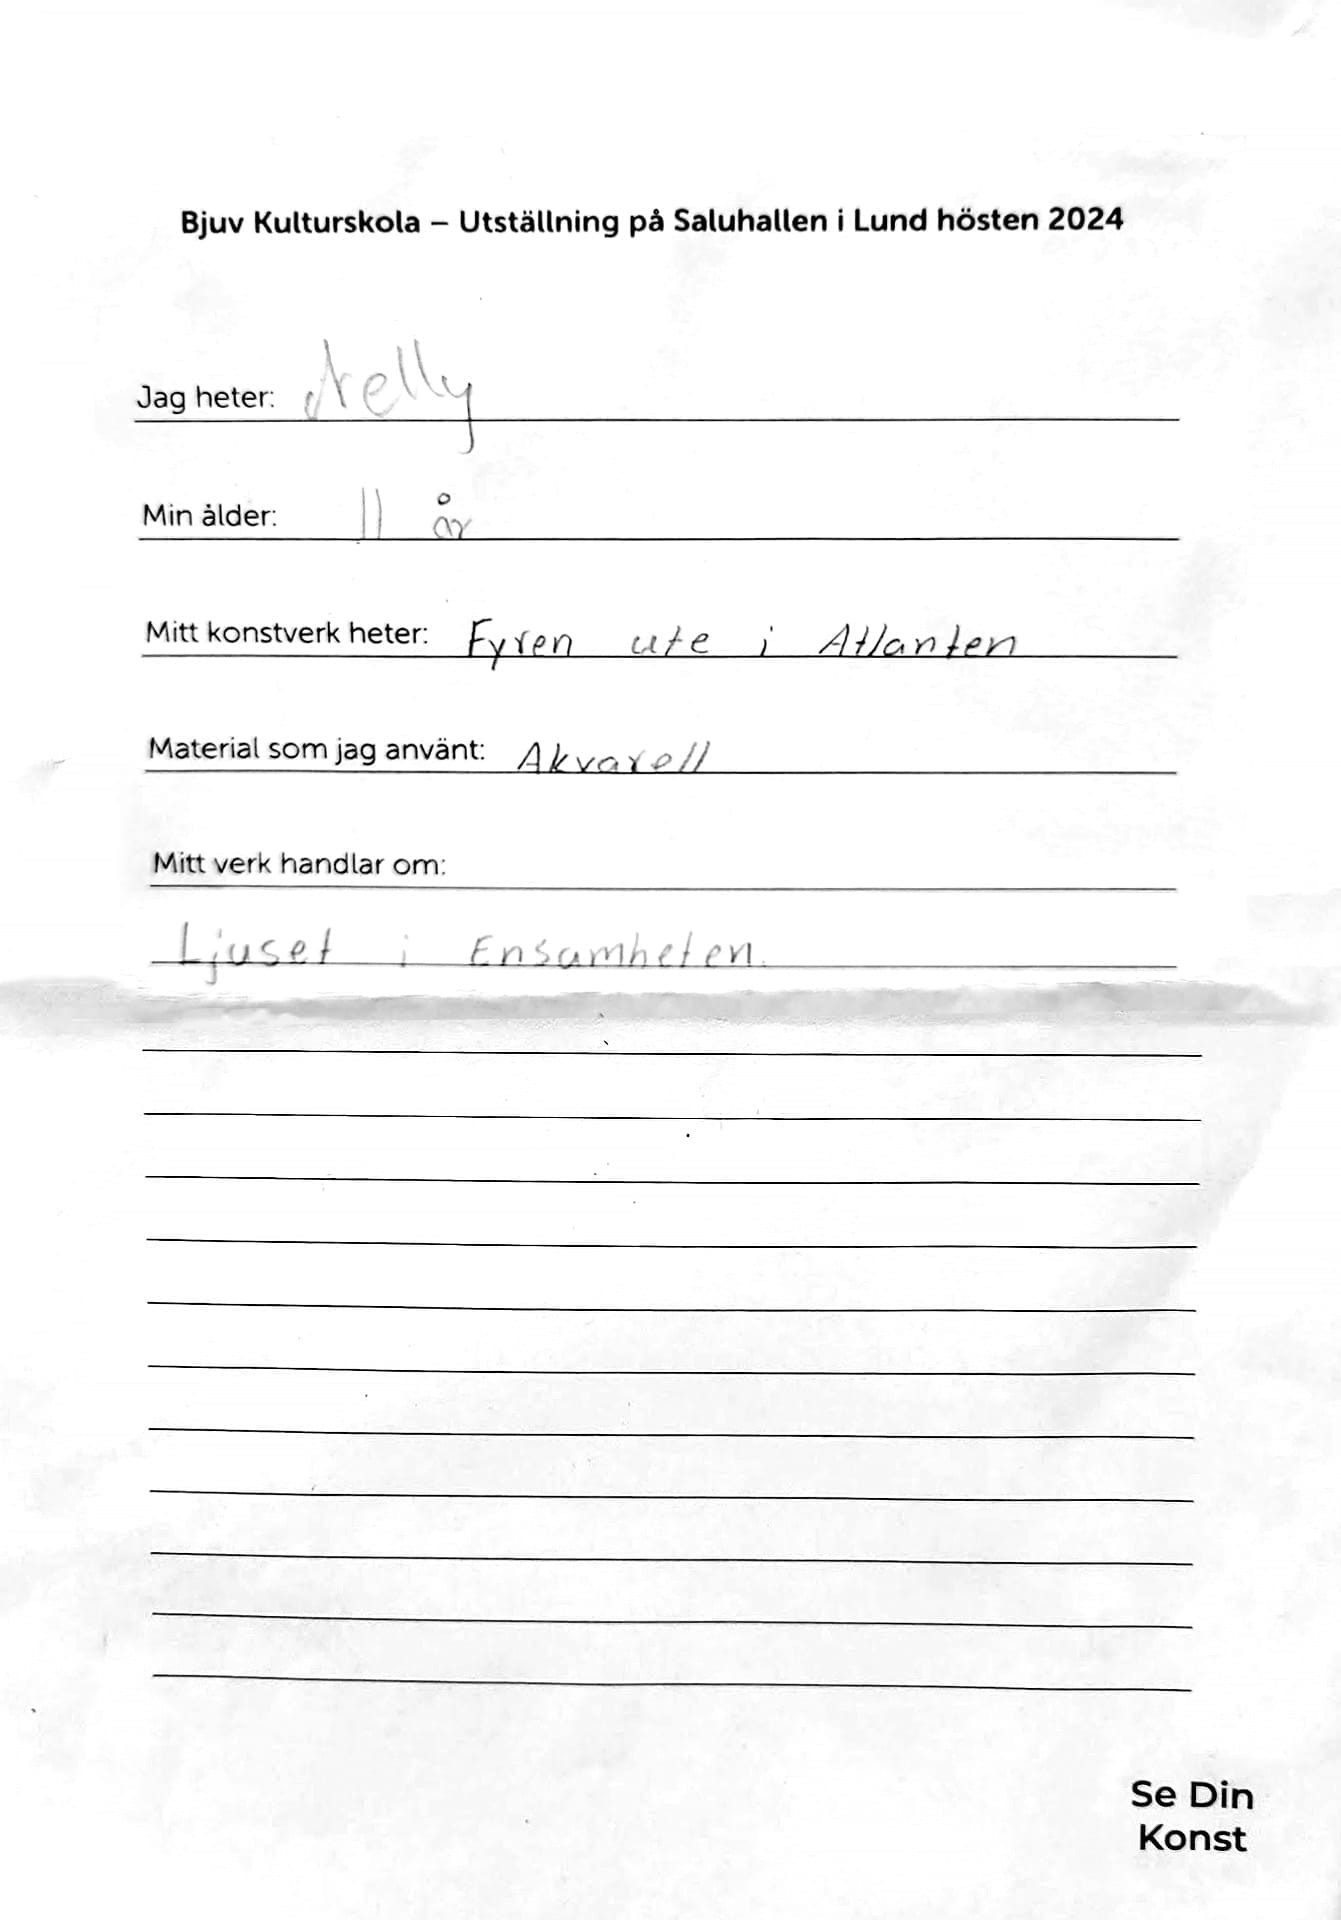 Bjuv Kulturskola – Utställning på Saluhallen i Lund hösten 2024
Jag heter: Nelly
Min ålder: 11 år
Mitt konstverk heter: Fyren ute i Atlanten
Material som jag använt: Akvarell
Mitt verk handlar om:
Ljuset i Ensamheten.
Se Din
Konst